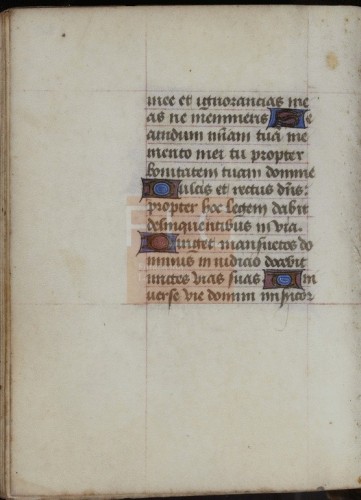 mee et ignorancias me
as ne memineris S e
cundum miam tua me
mento mei tu propter
bonitatem tuam domine
D ulcis et rectus dns:
propter hoc legem dabit
delinquentibus in via.
D iriget mansuetos do
minus in iudicio docebit
mites vias suas. U ni
uerse vie domini misicor